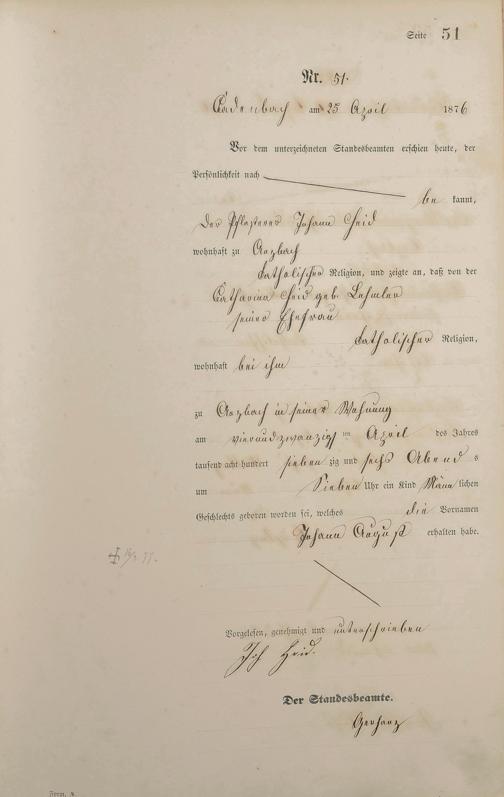 Seite 51
Nr. 51.
Cadenbach am 25 April 1876
Vor dem unterzeichneten Standesbeamten erschien heute, der
Persönlichkeit nach
be kannt,
der Pflasterer Johann
wohnhaft zu Arzbach
katholischer Religion, und zeigte an, daß von der
Catharina geb. Lehmler
seiner Ehefrau
katholischer Religion,
wohnhaft bei ihm
zu Arzbach in seiner Wohnung
am vierundzwanzigsten April des Jahres
tausend acht hundert sieben zig und sechs Abend s
um Sieben Uhr ein Kind Männ lichen
Geschlechts geboren worden sei, welches die Vornamen
Johann August erhalten habe.
Vorgelesen, genehmigt und unterschrieben
Joh
Der Standesbeamte.
Gerharz
Form.